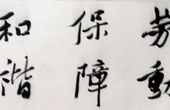 劳動
保障
和谐